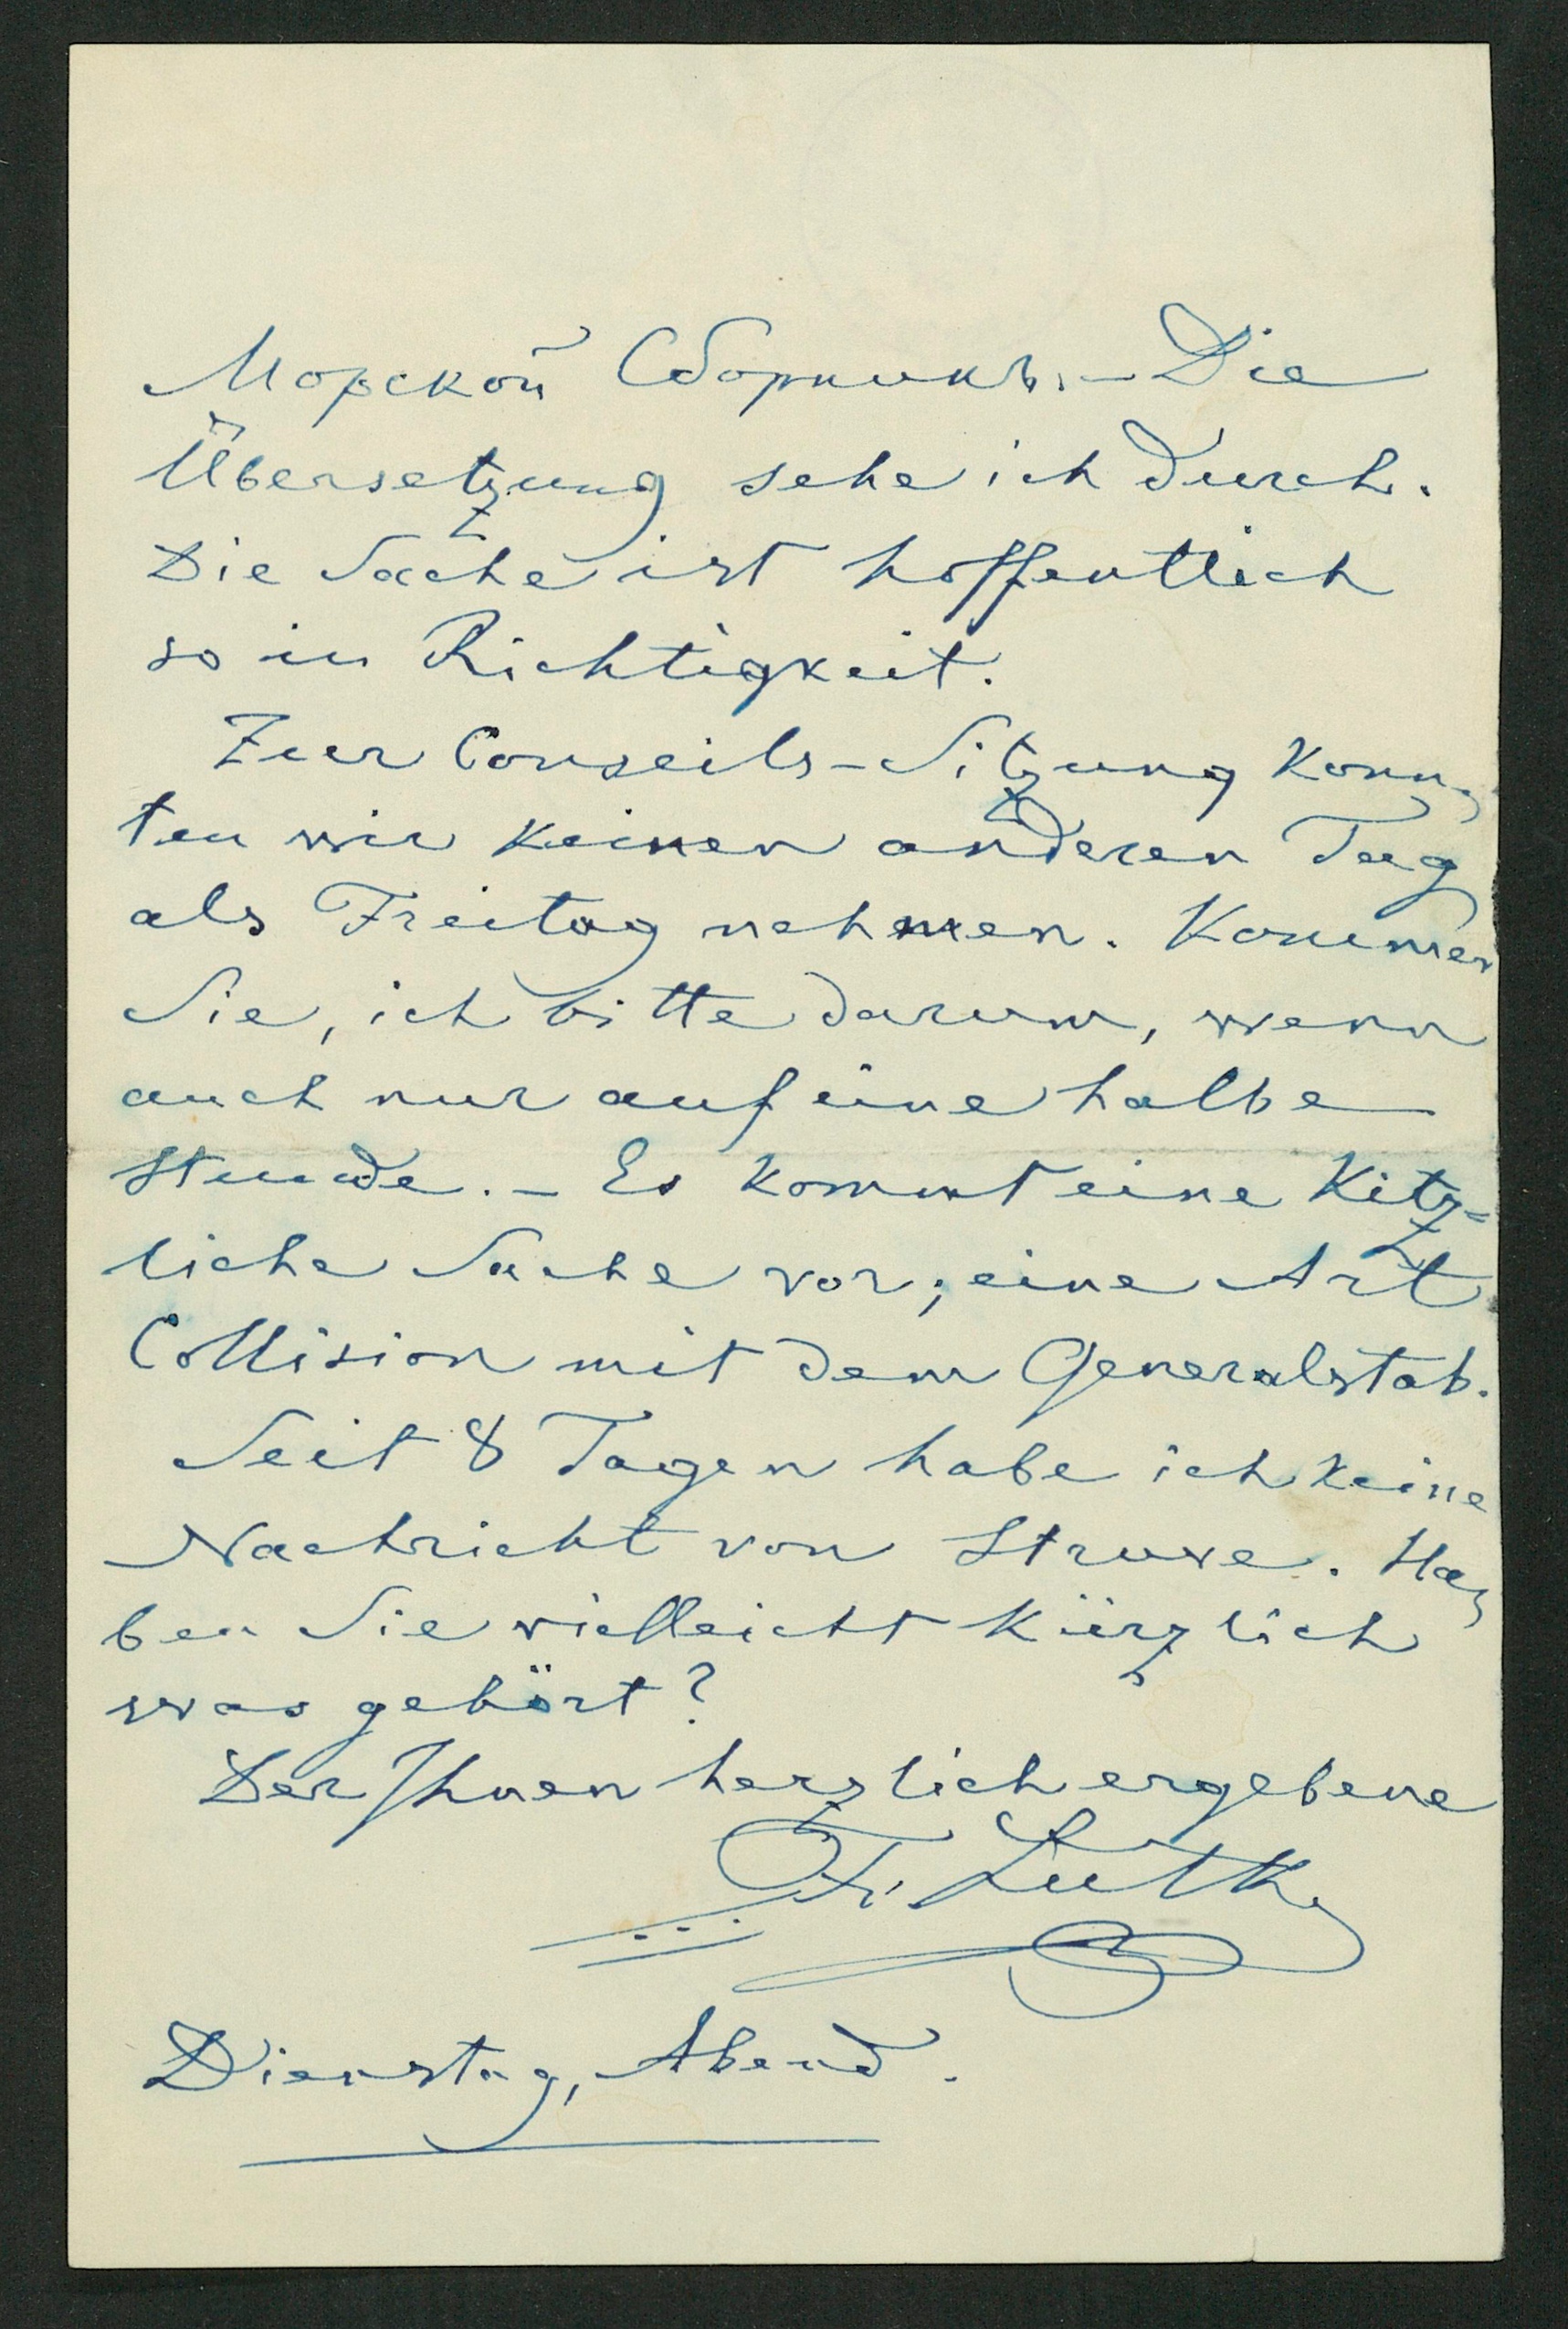 Морской Сборникъ. – Die
Übersetzung sehe ich durch.
Die Sache ist hoffentlich
so in Richtigkeit.
Zur Conseils-Sitzung konn-
ten wir keinen anderen Tag
als Freitag nehmen. Kommen
Sie, ich bitte darum, wenn
auch nur auf eine halbe
Stunde. – Es kommt eine kitz=
liche Sache vor; eine Art
Collision mit dem Generalstab.
Seit 8 Tagen habe ich keine
Nachricht von Struve. Ha-
ben Sie vielleicht kürzlich
was gehört?
Der Ihnen herzlich ergebene
Fr. Lütke
Dienstag, Abend.